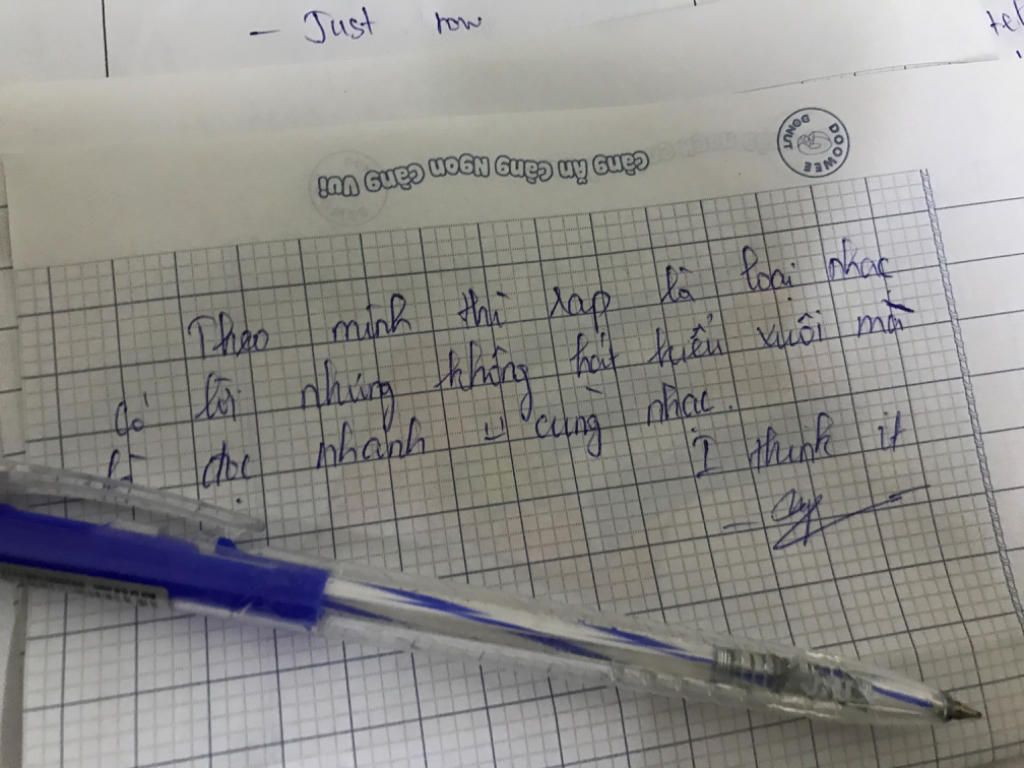 - Just row
tel
DOOWEE DONUT
Càng Ăn Càng Ngon Càng Vui
Theo mình thì rap là loại nhạc
có lời nhưng không hát kiểu xuôi mà
là đọc nhanh cùng nhạc.
I think it